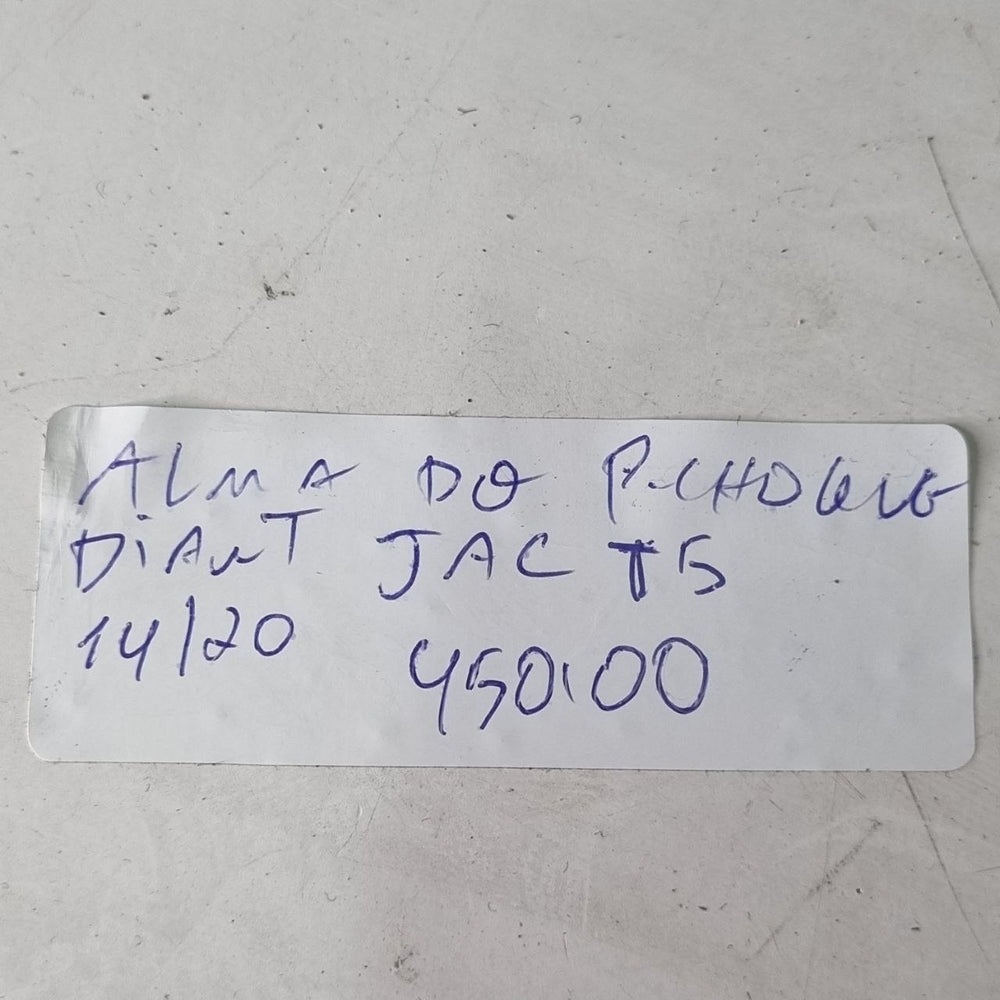 ALMA DO P-CHOQUE
DiANT JAC T5
14/20 450,00